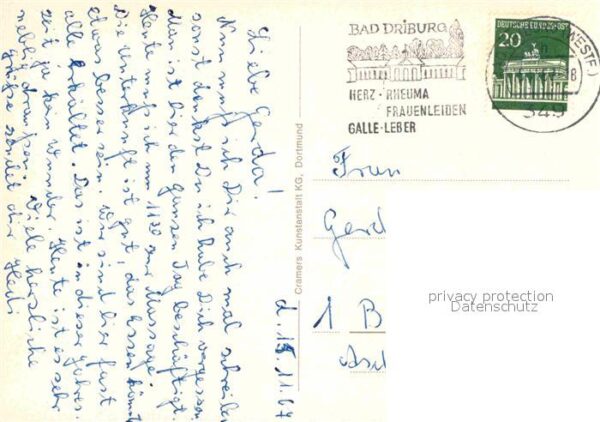 d. 15.11.67
Liebe Gerda!
Nun muß ich Dir auch mal schreiben
sonst denkst Du ich habe Dich vergessen.
Man ist hier den ganzen Tag beschäftigt.
Heute muß ich um 11 20 zur Massage.
Die Unterkunft ist gut, das Essen könnte
etwas besser sein. Wir sind hier fast
alle erkältet. Das ist in dieser Jahres-
zeit ja kein Wunder. Heute ist es sehr
neblig draußen. Viele herzliche
Grüße sendet dir
Cramers Kunstanstalt KG, Dortmund
BAD DRIBURG
HERZ · RHEUMA
FRAUENLEIDEN
GALLE · LEBER
(WESTF.)
349
DEUTSCHE BUNDESPOST
20
Frau
Gerd
1 B
privacy protection
Datenschutz